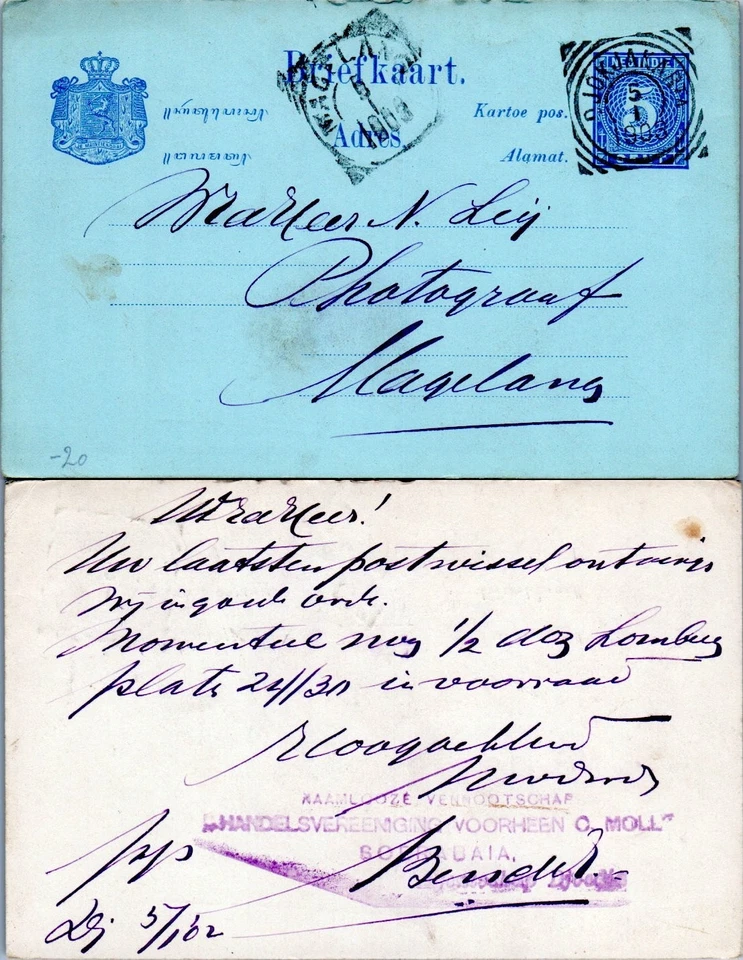 Briefkaart.
Adres
Kartoe pos.
Alamat.
MAGELANG
5
1
1903
DJOKJAKARTA
5
1
1903
NED. INDIE
5
WelEdHeer N. Leij
Photograaf
Magelang
-20
WelEdHeer!
Uw laatsten postwissel ontvingen
wij in goede orde.
Momenteel nog 1/2 doz Lomberg
plate 24/30 in voorraad
Hoogachtend
NAAMLOOZE VENNOOTSCHAP
„HANDELSVEREENIGING VOORHEEN O. MOLL"
SOERABAIA,
pp
Dj 5/1 02